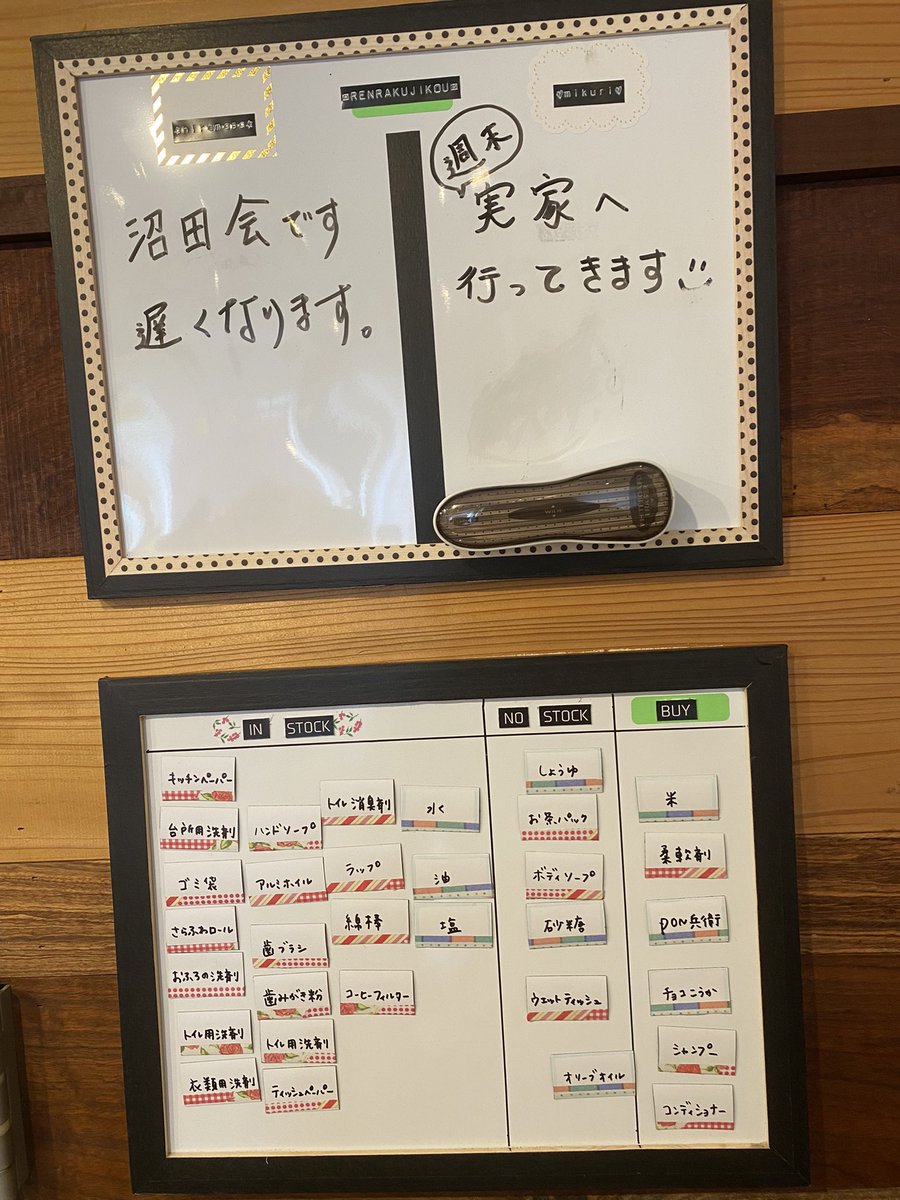 ¤RENRAKUJIKOU¤
♥mikuri♥
沼田会です
遅くなります。
週末
実家へ
行ってきます
IN STOCK
NO STOCK
BUY
キッチンペーパー
台所用洗剤
ゴミ袋
さらふわロール
おふろの洗剤
トイレ用洗剤
衣類用洗剤
ハンドソープ
アルミホイル
歯ブラシ
歯みがき粉
トイレ用洗剤
ティッシュペーパー
トイレ消臭剤
ラップ
綿棒
コーヒーフィルター
水
油
塩
しょうゆ
お茶パック
ボディソープ
砂糖
ウェットティッシュ
オリーブオイル
米
柔軟剤
PON兵衛
チョコこうか
シャンプー
コンディショナー